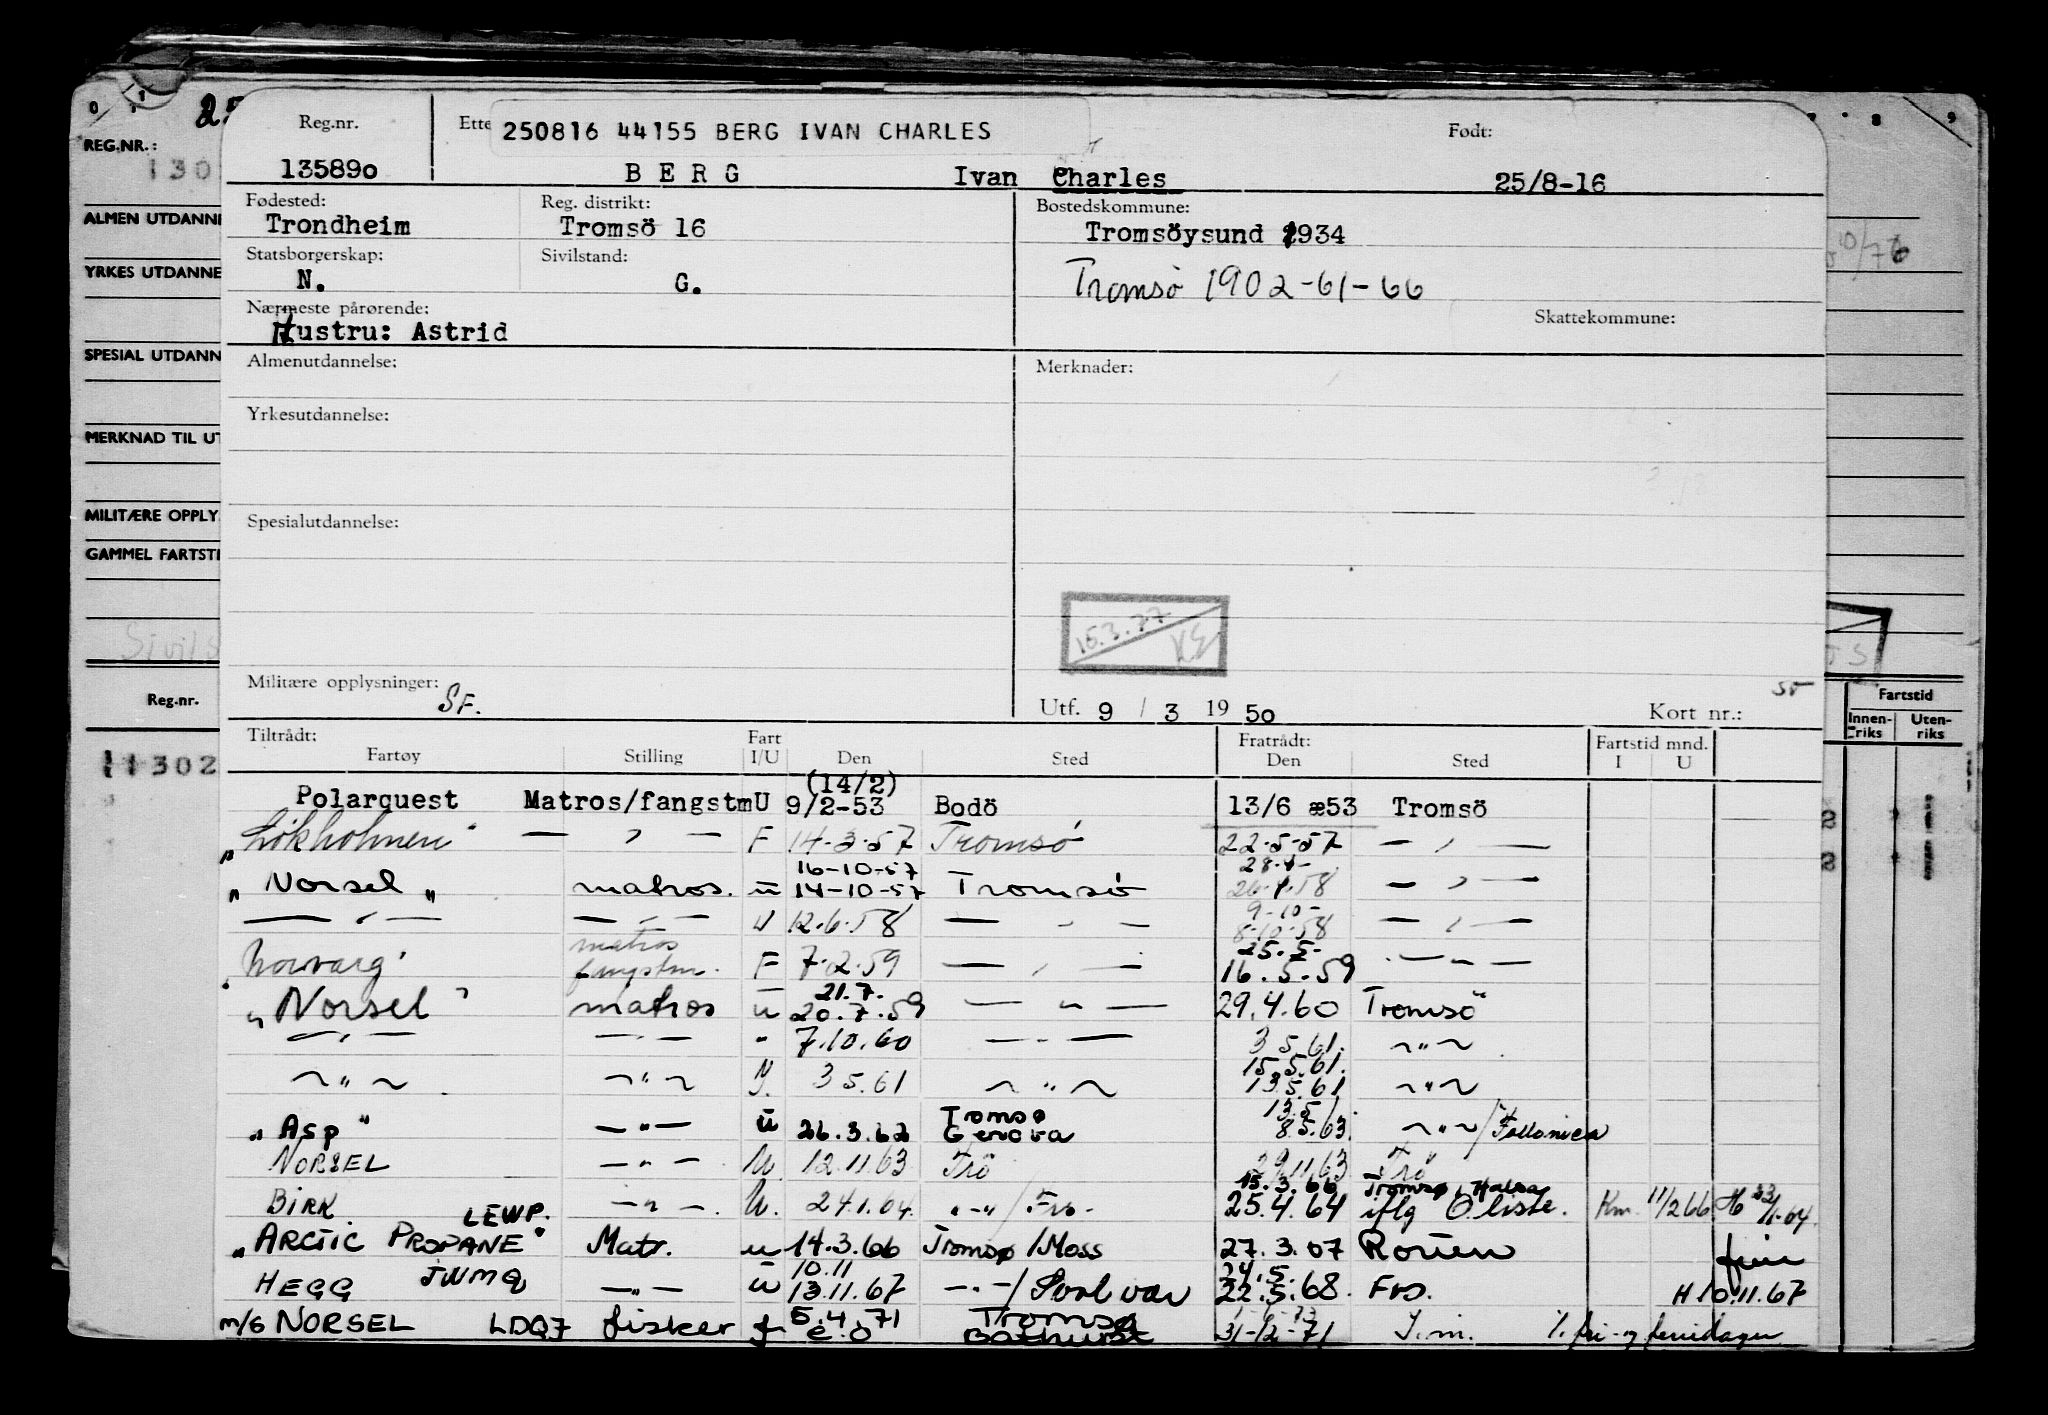 REG.NR.:
130
ALMEN UTDANNE
YRKES UTDANNE
SPESIAL UTDANN
MERKNAD TIL UT
MILITÆRE OPPLY
GAMMEL FARTSTI
Sivils
Reg.nr.
11302
Reg.nr. Ette 250816 44155 BERG IVAN CHARLES Født:
135890 BERG Ivan Charles 25/8-16
Fødested: Reg. distrikt: Bostedskommune:
Trondheim Tromsö 16 Tromsöysund 1934
Statsborgerskap: Sivilstand:
N. G. Tromsø 1902-61-66
Nærmeste pårørende: Skattekommune:
Hustru: Astrid
Almenutdannelse: Merknader:
Yrkesutdannelse:
Spesialutdannelse:
15.3.77 KE
Militære opplysninger: SF. Utf. 9 / 3 19 50 Kort nr.:
Tiltrådt: Fart Fratrådt: Fartstid mnd.
Fartøy Stilling I/U Den Sted Den Sted I U
(14/2)
Polarquest Matros/fangstm U 9/2-53 Bodö 13/6 æ53 Tromsö
"Løkholmen" — " — F 14-3-57 Tromsø 22-5-57 — " —
16-10-57 28-1-
"Norsel" matros. u 14-10-57 Tromsø 26-1-58 — " —
9-10-
— " — — " — U 12.6.58 — " — 8-10-58 — " —
matros 25.5-
"Norvarg" fangstm. F 7.2.59 — " — 16.5.59 — " —
21.7.
"Norsel" matros u 20.7.59 — " — 29.4.60 Tromsö
— " — — " — " 7.10.60 — " — 3 5.61. — " —
15.5.61.
— " — — " — 3 5.61 — " — 13.5.61 — " —
Tromsø 13.5
"Asp" — " — u 26.3.62 Genova 8.5.63. — " — / Follonica
NORSEL — " — U 12.11.63 Trö 29.11.63 Trö
15.3.66 Tromsø
BIRK — " — U. 24.1.64. — " — / Fro. 25.4.64 iflg O.liste. Km. 11/2 66 H 23/1-64.
LEWP.
"ARCTIC PROPANE" Matr. u 14.3.66 Tromsø / Moss 27.3.67 Rouen
10.11 24.5.
HEGG JWMQ — " — u 13.11.67 — " — / Svolvær 22.5.68. Frs. H 10.11.67
5.4.71 Tromsø
m/s NORSEL LDQ7 fisker f e.o Bathurst 31-12-71 I.m. %. fri- og feriedager
10/76
Fartstid
Innen-riks Uten-riks
2
2